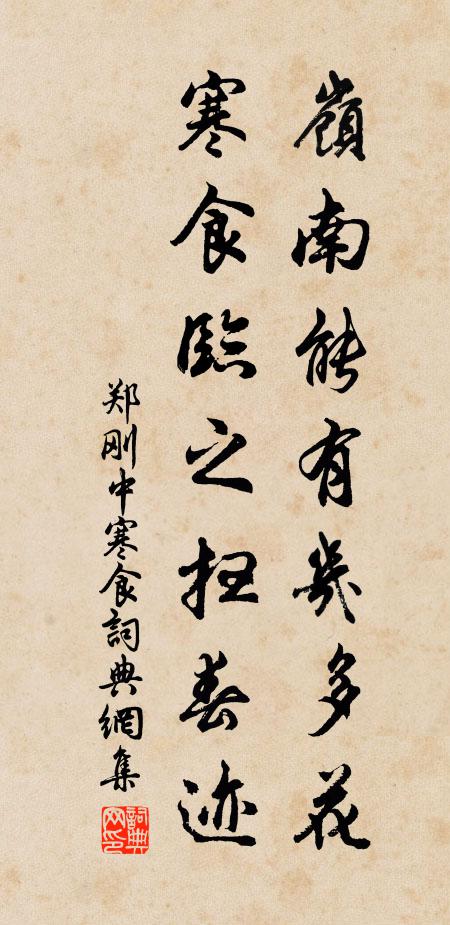 嶺南能有幾多花
寒食臨之掃春迹
郑刚中寒食詞典網集
詞典網印